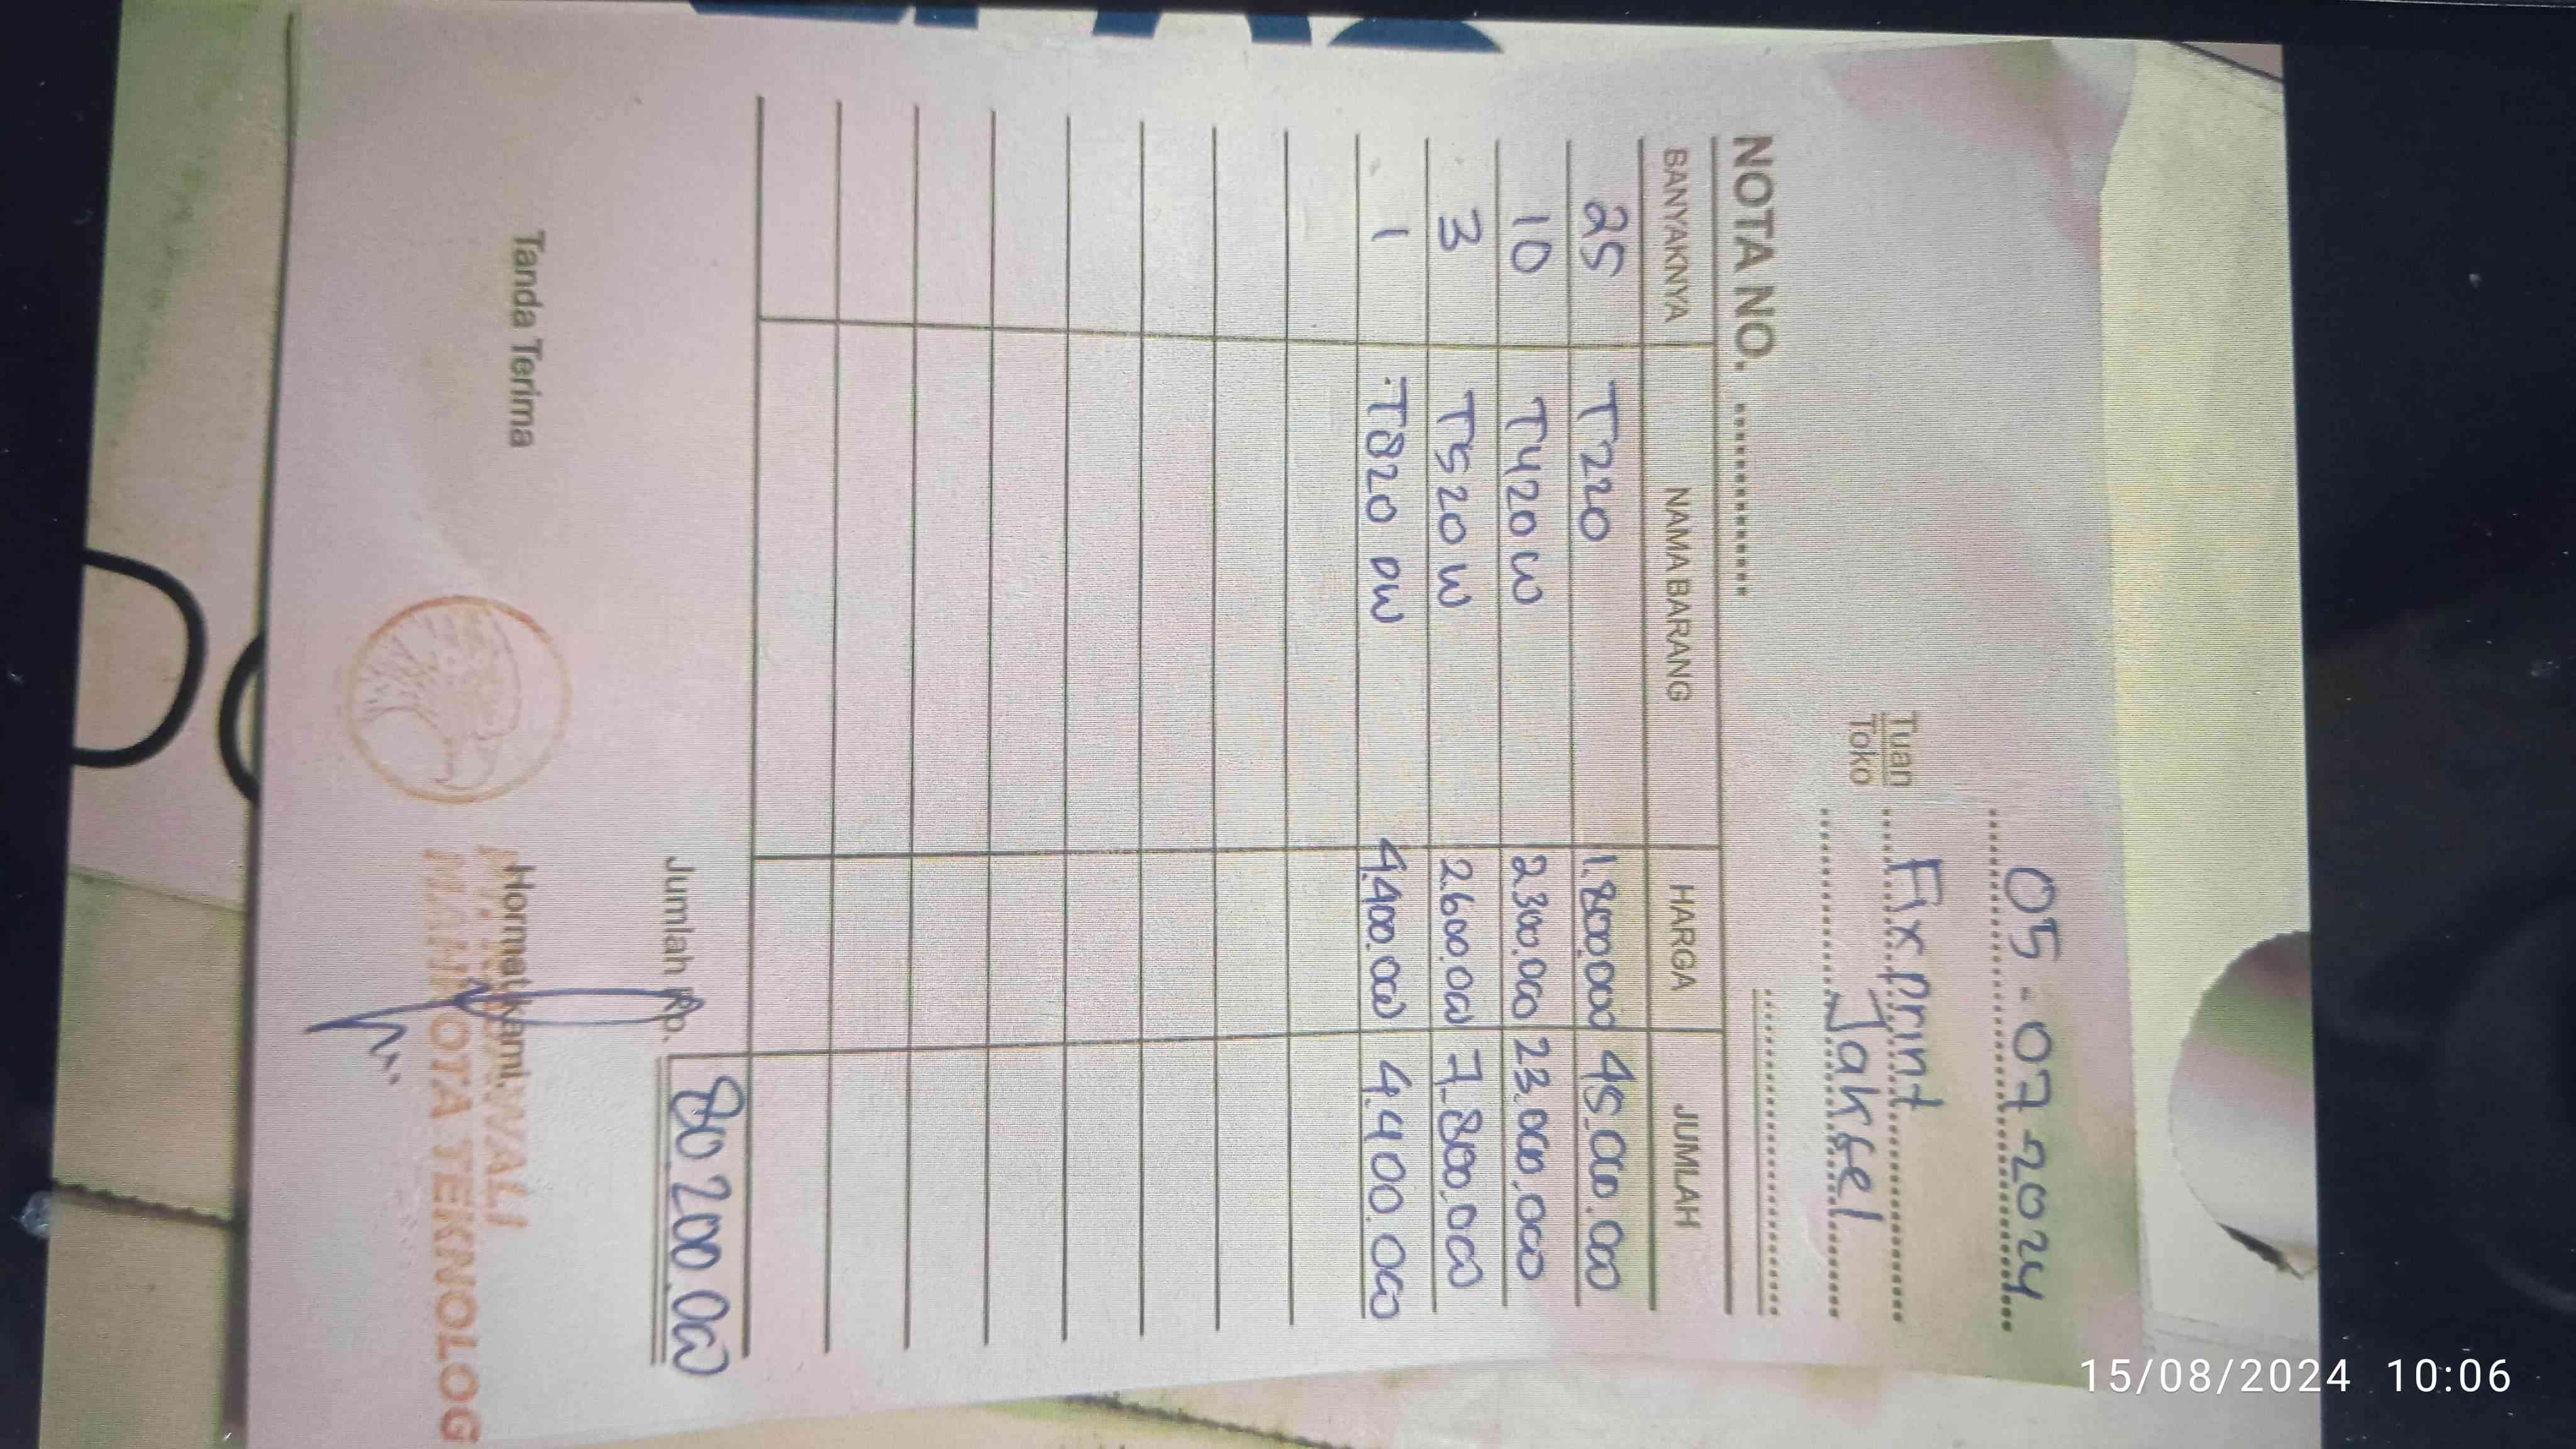 05-07-2024
Tuan Fixprint
Toko Jaksel
NOTA NO. ....................
BANYAKNYA NAMA BARANG HARGA JUMLAH
25 T220 1.800.000 45.000.000
10 T420W 2.300.000 23.000.000
3 T520W 2.600.000 7.800.000
1 T820 DW 4.400.000 4.400.000
Jumlah Rp. 80.200.000
Tanda Terima Hormat kami,
MAHKOTA TEKNOLOG
15/08/2024 10:06